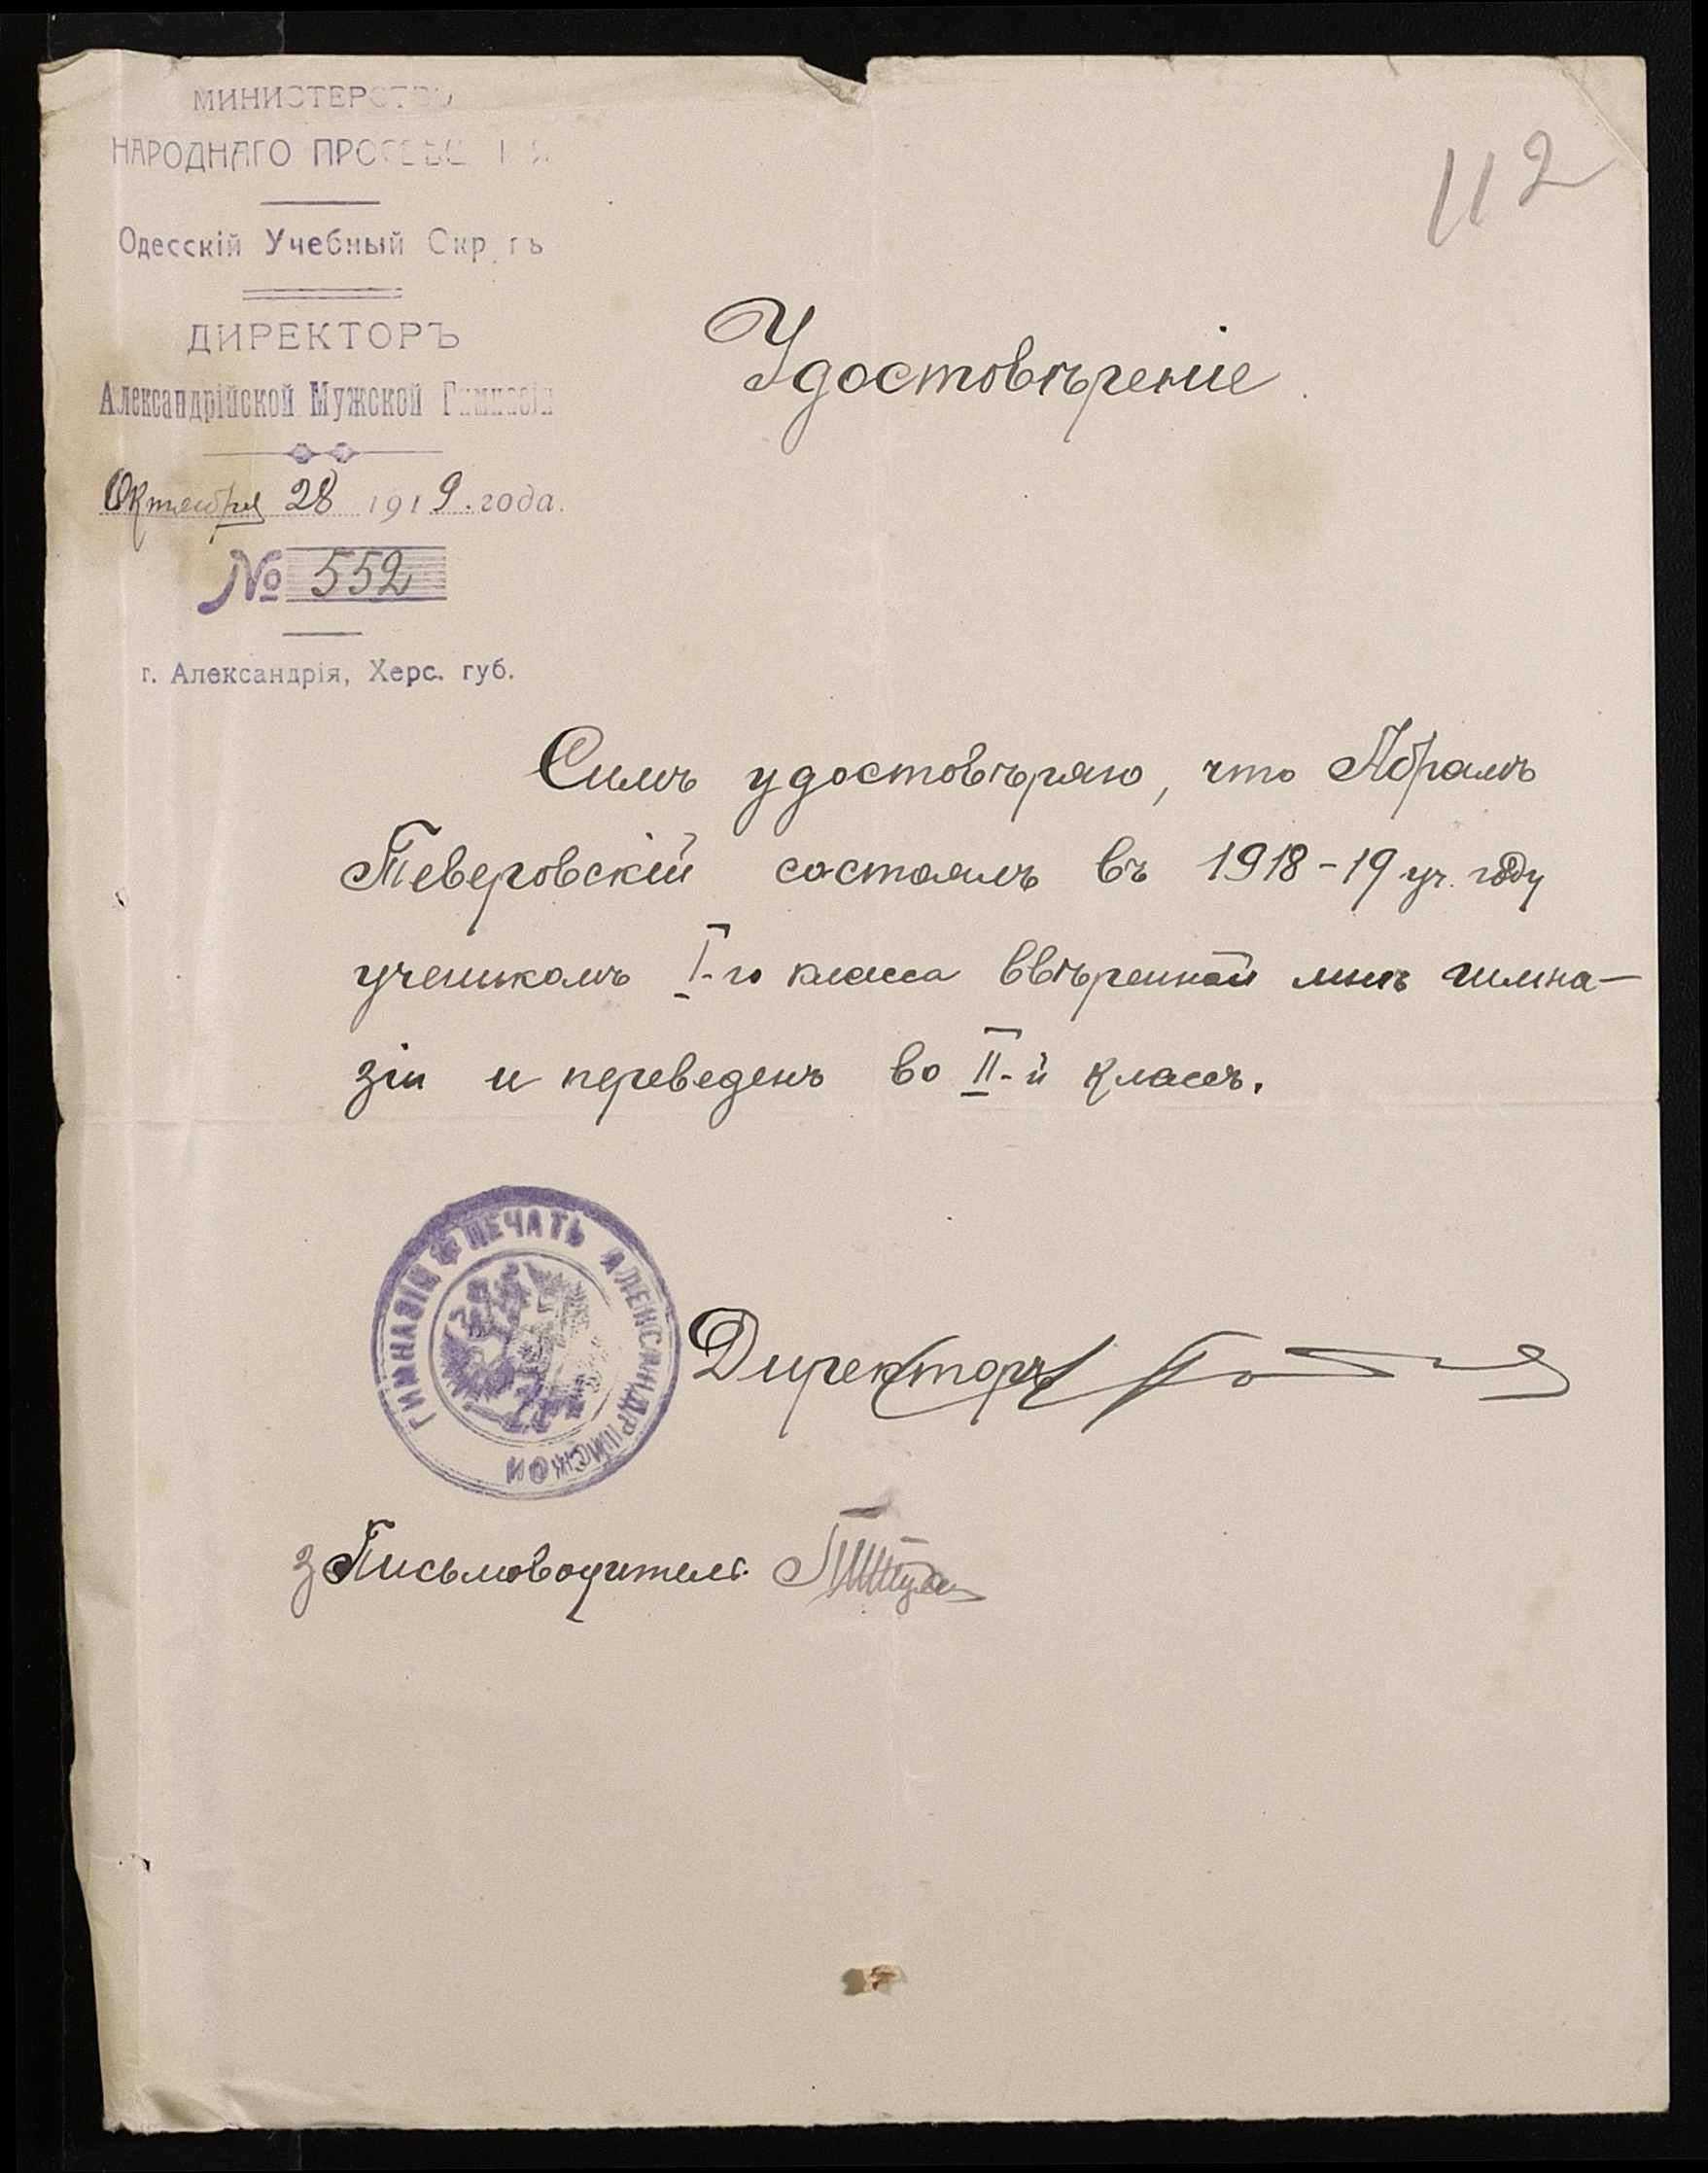 МИНИСТЕРСТВО
НАРОДНАГО ПРОСВѢЩЕНІЯ
Одесскій Учебный Округъ
ДИРЕКТОРЪ
Александрійской Мужской Гимназіи
Октября 28 1919. года.
№ 552
г. Александрія, Херс. губ.
112
Удостовѣреніе.
Симъ удостовѣряю, что Абрамъ
Теверовскій состоялъ въ 1918-19 уч. году
ученикомъ I-го класса ввѣренной мнѣ гимна-
зіи и переведенъ во II-й классъ.
ПЕЧАТЬ АЛЕКСАНДРІЙСКОЙ ГИМНАЗІИ
Директоръ
з Письмоводителя